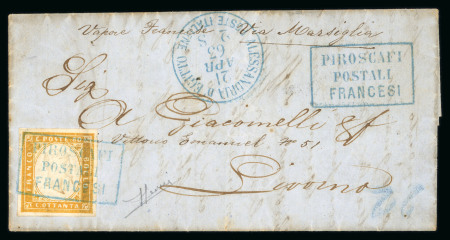 Vapore Francese Via Marsiglia
ALESSANDRIA D'EGITTO POSTE ITALIANE
21
APR
63
2 S
PIROSCAFI
POSTALI
FRANCESI
Sig
A Giacomelli
Vittorio Emanuel N° 51
Livorno
C. POSTE
FRANCO
BOLLO
C. OTTANTA
PIROSCAFI
POSTALI
FRANCESI